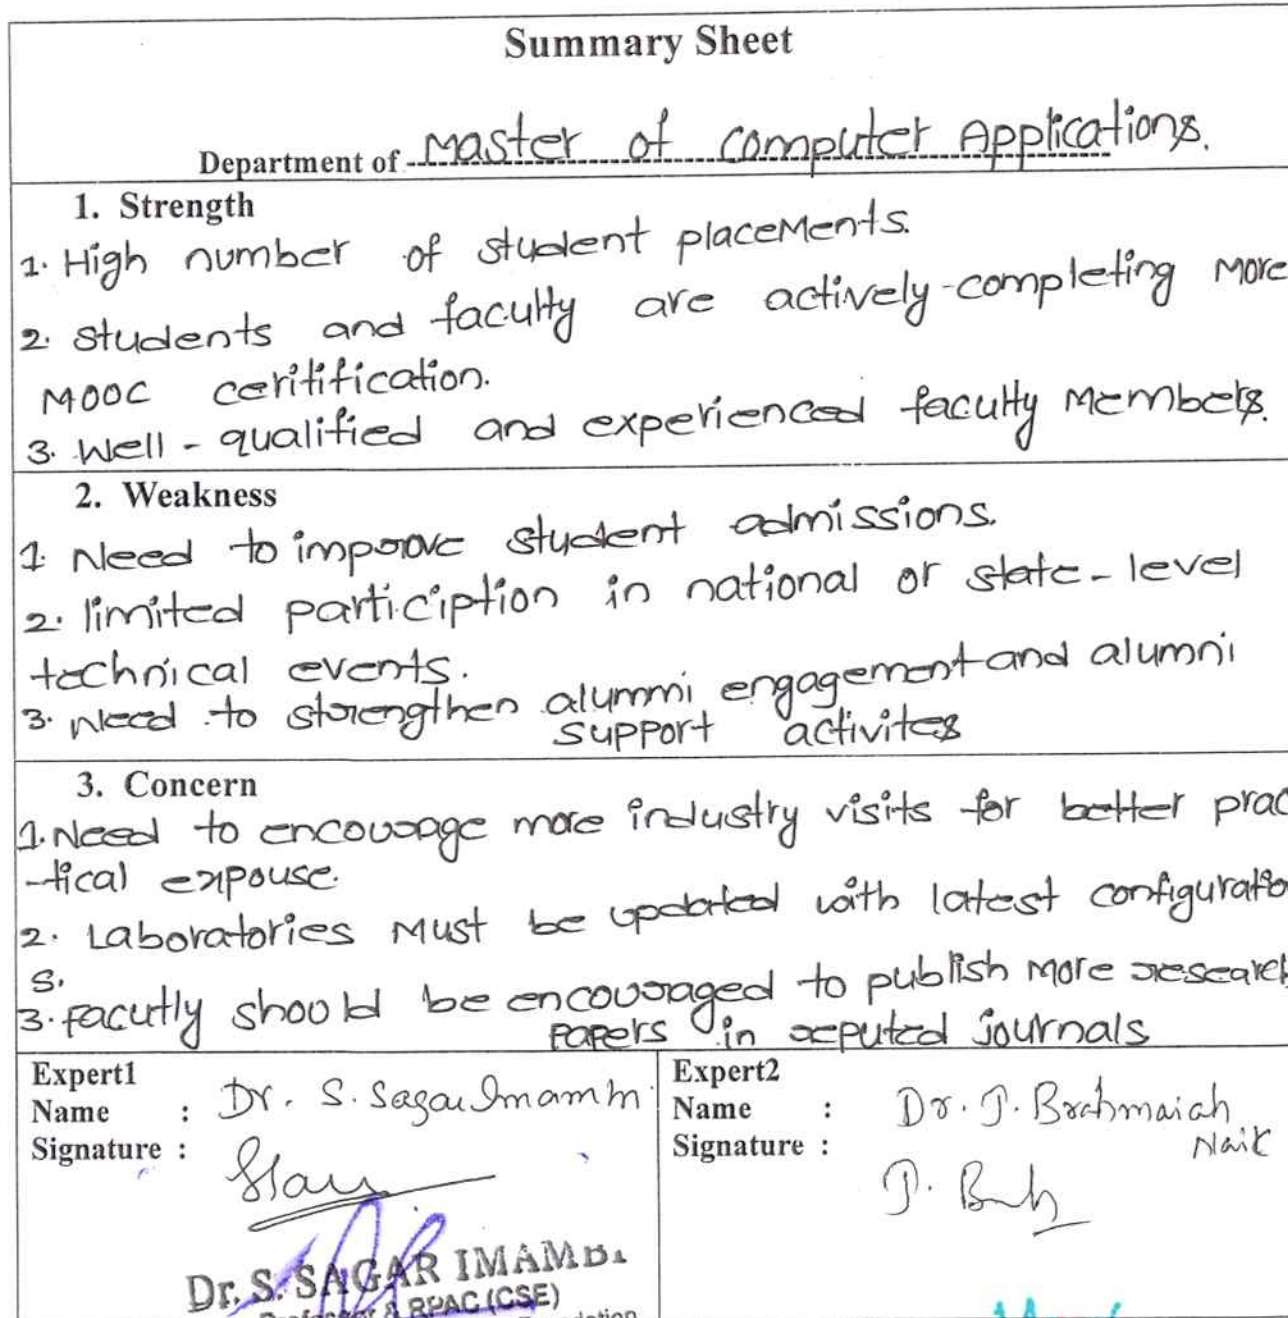 Summary Sheet
Department of Master of Computer Applications.
1. Strength
1. High number of student placements.
2. Students and faculty are actively-completing more
MOOC ceritification.
3. Well-qualified and experienced faculty members.
2. Weakness
1. Need to improve student admissions.
2. limited particiption in national or state-level
technical events.
3. Need to strengthen alummi engagement and alumni
support activites
3. Concern
1. Need to encourage more industry visits for better prac
-tical expouse.
2. Laboratories Must be updated with latest configuration
s.
3. facutly should be encouraged to publish more research
papers in reputed journals
Expert1
Name : Dr. S. Sagar Imamb
Signature :
Dr. S. SAGAR IMAMBI
Professor & RPAC (CSE)
Expert2
Name : Dr. J. Brahmaiah
Naik
Signature :